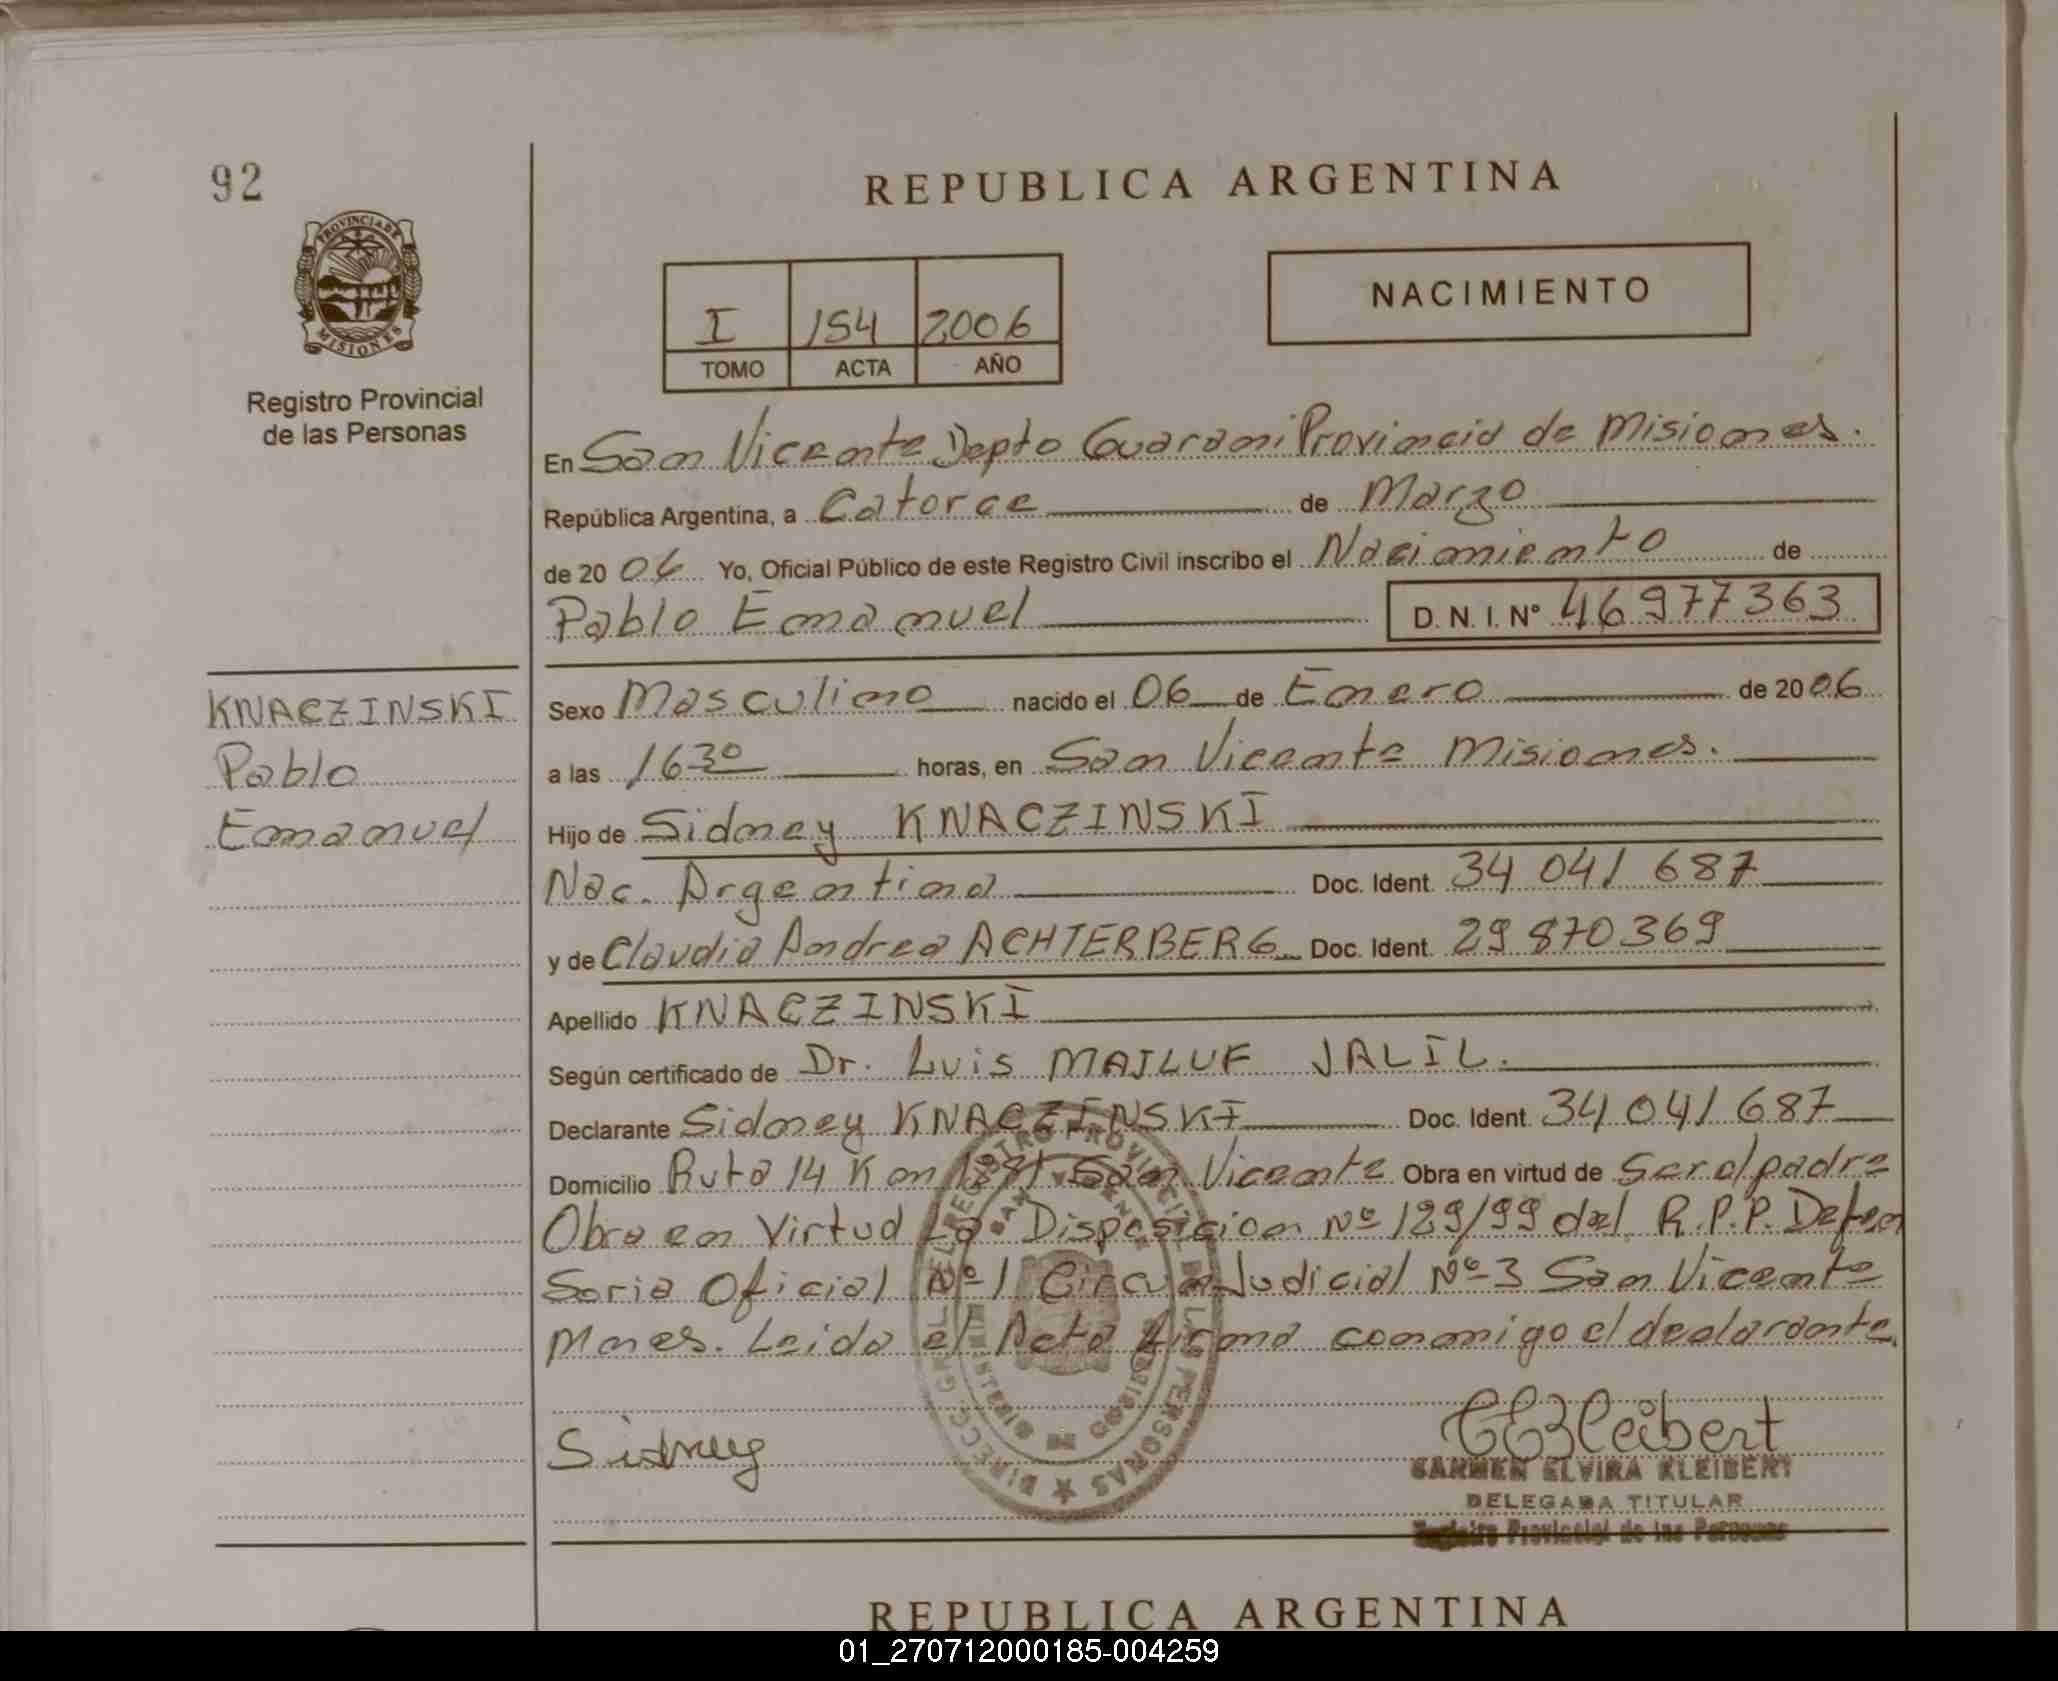 92
REPUBLICA ARGENTINA
PROVINCIA DE
MISIONES
Registro Provincial
de las Personas
I 154 2006
TOMO ACTA AÑO
NACIMIENTO
En San Vicente Depto Guarani Provincia de Misiones.
República Argentina, a Catorce de Marzo
de 20 06 Yo, Oficial Público de este Registro Civil inscribo el Nacimiento de
Pablo Emanuel D. N. I. Nº 46977363
KNACZINSKI
Pablo
Emanuel
Sexo Masculino nacido el 06 de Enero de 20 06
a las 16 30 horas, en San Vicente Misiones.
Hijo de Sidney KNACZINSKI
Nac. Argentina Doc. Ident. 34 041 687
y de Claudia Andrea ACHTERBERG Doc. Ident. 29 870 369
Apellido KNACZINSKI
Según certificado de Dr. Luis MAJLUF JALIL.
Declarante Sidney KNACZINSKI Doc. Ident. 34 041 687
Domicilio Ruta 14 Km San Vicente Obra en virtud de Ser el padre
Obra en Virtud La Disposicion Nº 129/99 del R.P.P. Defen
Soria Oficial Nº 1 Circun Judicial Nº 3 San Vicente
Mnes. Leida el Acta firma conmigo el declarante.
Sidney
CEKleibert
CARMEN ELVIRA KLEIBERT
DELEGADA TITULAR
Registro Provincial de las Personas
REPUBLICA ARGENTINA
01_270712000185-004259